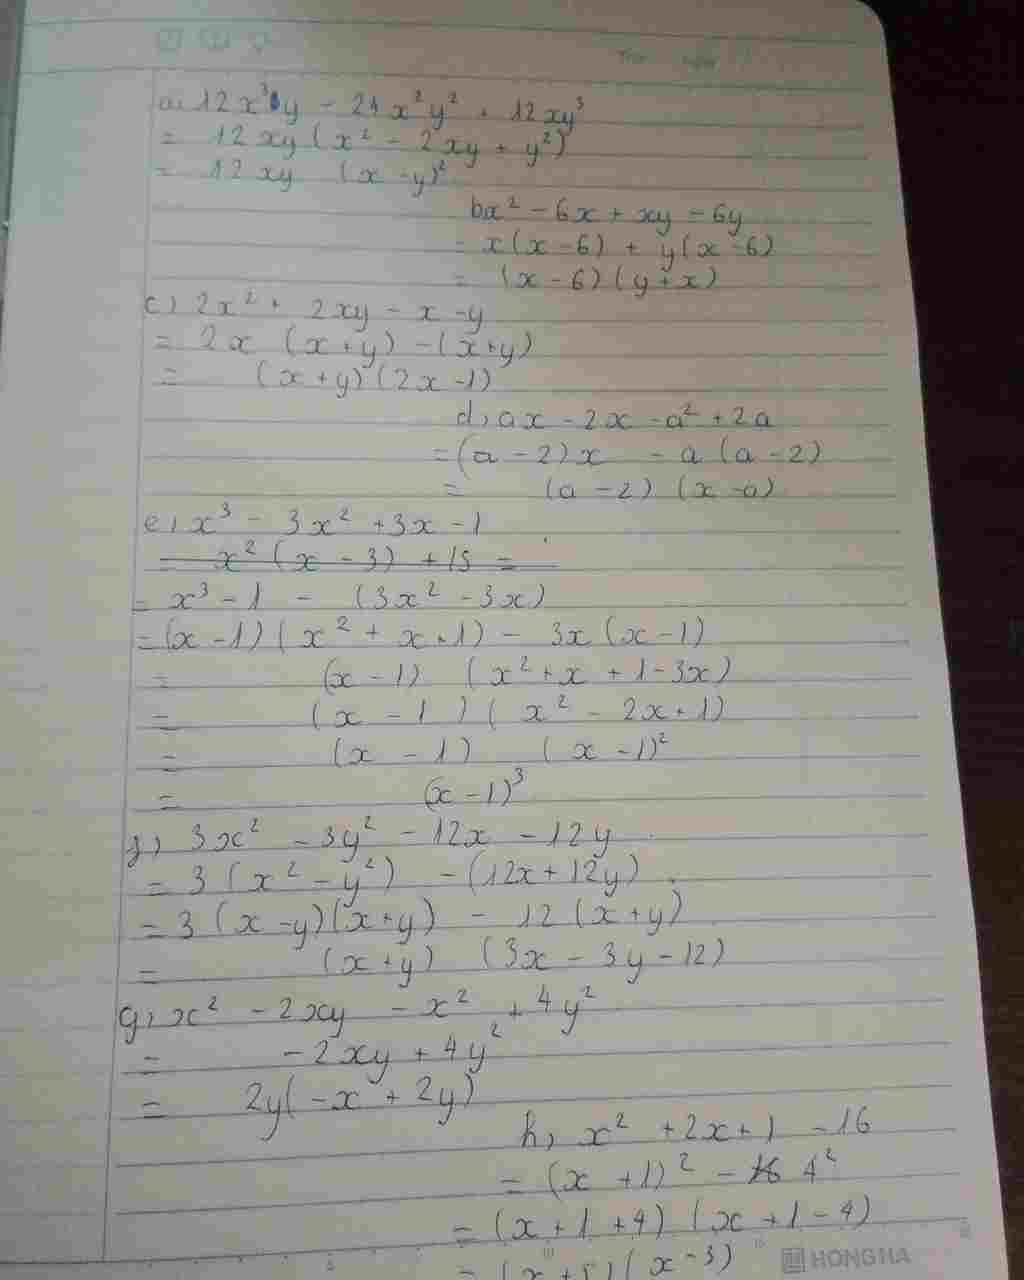 a, 12x³y - 24x²y² + 12xy³
= 12xy (x² - 2xy + y²)
= 12xy (x - y)²
bx² - 6x + xy - 6y
= x(x - 6) + y(x - 6)
= (x - 6)(y + x)
c, 2x² + 2xy - x - y
= 2x (x + y) - (x + y)
= (x + y)(2x - 1)
d, ax - 2x - a² + 2a
= (a - 2)x - a(a - 2)
= (a - 2) (x - a)
e, x³ - 3x² + 3x - 1
= x³ - 1 - (3x² - 3x)
= (x - 1)(x² + x + 1) - 3x(x - 1)
= (x - 1) (x² + x + 1 - 3x)
= (x - 1)(x² - 2x + 1)
= (x - 1) (x - 1)²
= (x - 1)³
f, 3x² - 3y² - 12x - 12y
= 3(x² - y²) - (12x + 12y)
= 3(x - y)(x + y) - 12(x + y)
= (x + y) (3x - 3y - 12)
g, x² - 2xy - x² + 4y²
= -2xy + 4y²
= 2y(-x + 2y)
h, x² + 2x + 1 - 16
= (x + 1)² - 4²
= (x + 1 + 4)(x + 1 - 4)
= (x + 5)(x - 3)
HONG HA